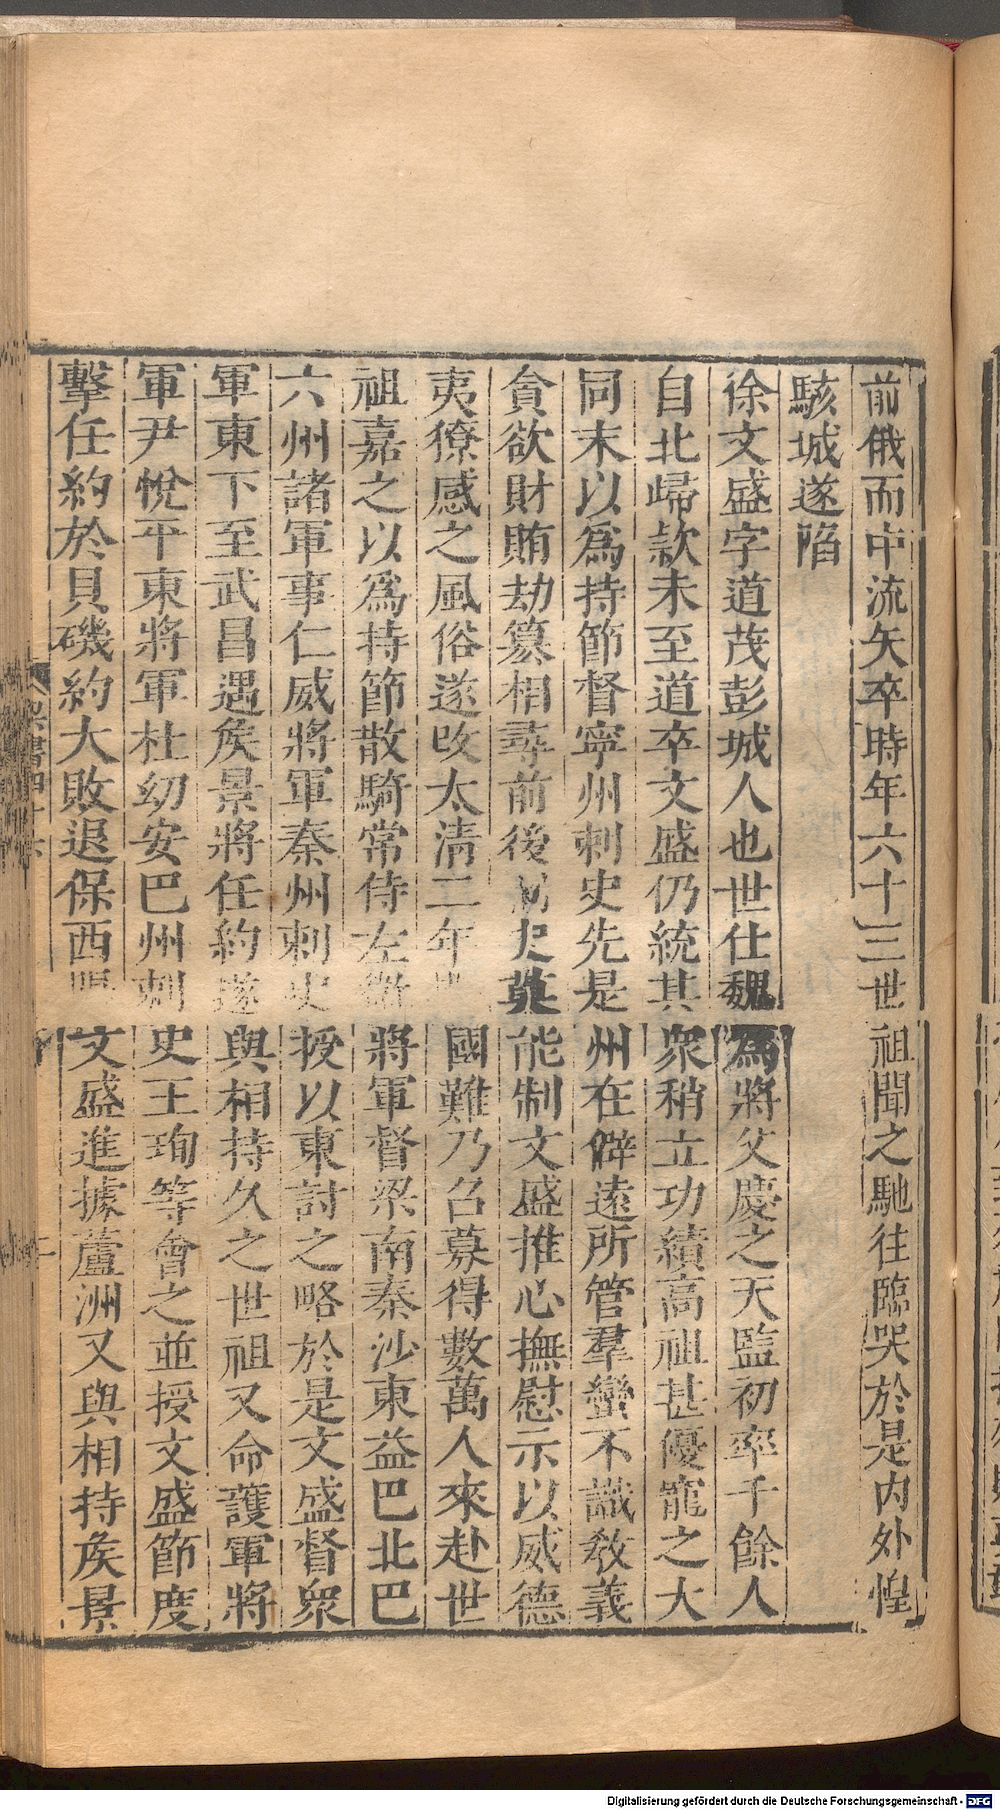 前俄而中流矢卒時年六十三世祖聞之馳往臨哭於是內外惶
駭城遂陷
徐文盛字道茂彭城人也世仕魏爲將父慶之天監初率千餘人
自北歸款未至道卒文盛仍統其衆稍立功績高祖甚優寵之大
同末以爲持節督寧州刺史先是州在僻遠所管羣蠻不識敎義
貪欲財賄劫篡相尋前後刺史莫能制文盛推心撫慰示以威德
夷獠感之風俗遂改太淸二年國難乃召募得數萬人來赴世
祖嘉之以爲持節散騎常侍左衞將軍督梁南秦沙東益巴北巴
六州諸軍事仁威將軍秦州刺史授以東討之略於是文盛督衆
軍東下至武昌遇矦景將任約遂與相持久之世祖又命護軍將
軍尹悅平東將軍杜幼安巴州刺史王珣等會之並授文盛節度
擊任約於貝磯約大敗退保西陽文盛進據蘆洲又與相持矦景
梁書四十六
二
Digitalisierung gefördert durch die Deutsche Forschungsgemeinschaft - DFG